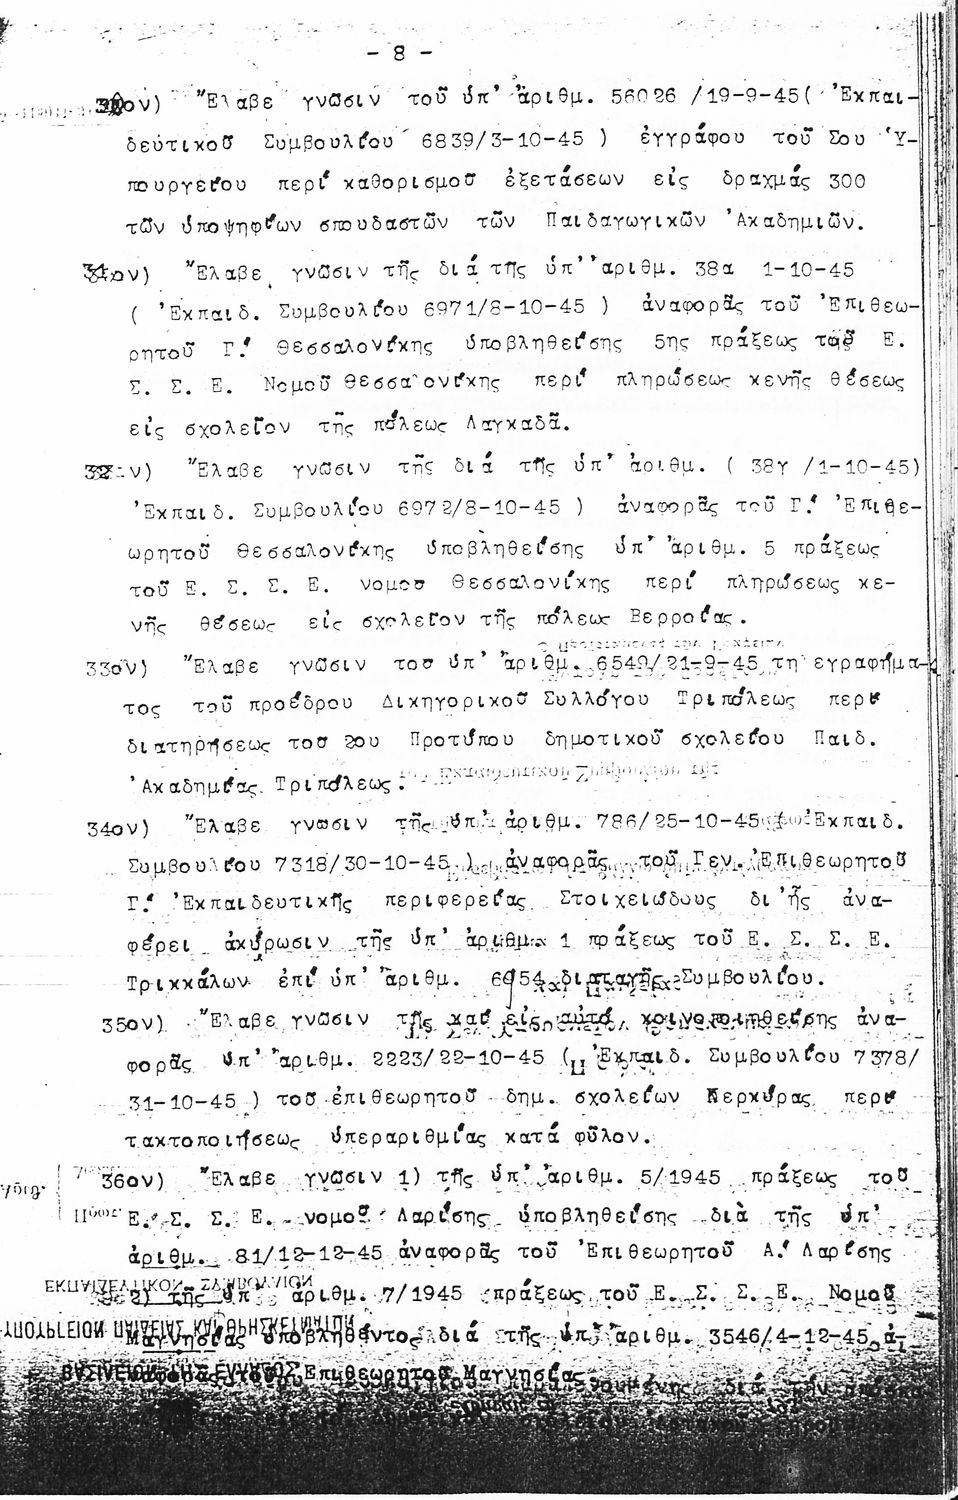 - 8 -
30ον) Ἔλαβε γνῶσιν τοῦ ὑπ' ἀριθμ. 56026 /19-9-45( Ἐκπαι-
δευτικοῦ Συμβουλίου 6839/3-10-45 ) ἐγγράφου τοῦ Σου Ὑ-
πουργείου περί καθορισμοῦ ἐξετάσεων εἰς δραχμάς 300
τῶν ὑποψηφίων σπουδαστῶν τῶν Παιδαγωγικῶν Ἀκαδημιῶν.
31ον) Ἔλαβε γνῶσιν τῆς διά τῆς ὑπ' ἀριθμ. 38α 1-10-45
( Ἐκπαιδ. Συμβουλίου 6971/8-10-45 ) ἀναφορᾶς τοῦ Ἐπιθεω-
ρητοῦ Γ.' Θεσσαλονίκης ὑποβληθείσης 5ης πράξεως τοῦ Ε.
Σ. Σ. Ε. Νομοῦ Θεσσαλονίκης περί πληρώσεως κενῆς θέσεως
εἰς σχολεῖον τῆς πόλεως Λαγκαδᾶ.
32ον) Ἔλαβε γνῶσιν τῆς διά τῆς ὑπ' ἀριθμ. ( 38γ /1-10-45)
Ἐκπαιδ. Συμβουλίου 6972/8-10-45 ) ἀναφορᾶς τοῦ Γ.' Ἐπιθε-
ωρητοῦ Θεσσαλονίκης ὑποβληθείσης ὑπ' ἀριθμ. 5 πράξεως
τοῦ Ε. Σ. Σ. Ε. νομοῦ Θεσσαλονίκης περί πληρώσεως κε-
νῆς θέσεως εἰς σχολεῖον τῆς πόλεως Βερροίας.
33ον) Ἔλαβε γνῶσιν τοῦ ὑπ' ἀριθμ. 6549/21-9-45 τηλεγραφήμα-
τος τοῦ προέδρου Δικηγορικοῦ Συλλόγου Τριπόλεως περί
διατηρήσεως τοῦ 2ου Προτύπου δημοτικοῦ σχολείου Παιδ.
Ἀκαδημίας Τριπόλεως.
34ον) Ἔλαβε γνῶσιν τῆς ὑπ' ἀριθμ. 786/25-10-45 ( Ἐκπαιδ.
Συμβουλίου 7318/30-10-45 ) ἀναφορᾶς τοῦ Γεν. Ἐπιθεωρητοῦ
Γ.' Ἐκπαιδευτικῆς περιφερείας Στοιχειώδους δι' ἧς ἀνα-
φέρει ἀκύρωσιν τῆς ὑπ' ἀριθμ. 1 πράξεως τοῦ Ε. Σ. Σ. Ε.
Τρικκάλων ἐπί ὑπ' ἀριθμ. 6954 διαταγῆς Συμβουλίου.
35ον) Ἔλαβε γνῶσιν τῆς καί εἰς αὐτό κοινοποιηθείσης ἀνα-
φορᾶς ὑπ' ἀριθμ. 2223/22-10-45 ( Ἐκπαιδ. Συμβουλίου 7378/
31-10-45 ) τοῦ ἐπιθεωρητοῦ δημ. σχολείων Κερκύρας περί
τακτοποιήσεως ὑπεραριθμίας κατά φῦλον.
36ον) Ἔλαβε γνῶσιν 1) τῆς ὑπ' ἀριθμ. 5/1945 πράξεως τοῦ
Ε. Σ. Σ. Ε. νομοῦ Λαρίσης ὑποβληθείσης διὰ τῆς ὑπ'
ἀριθμ. 81/12-12-45 ἀναφορᾶς τοῦ Ἐπιθεωρητοῦ Α.' Λαρίσης
2) τῆς ὑπ' ἀριθμ. 7/1945 πράξεως τοῦ Ε. Σ. Σ. Ε. Νομοῦ
Μαγνησίας ὑποβληθέντος διά τῆς ὑπ' ἀριθμ. 3546/4-12-45 ἀ-
Ἐπιθεωρητοῦ Μαγνησίας.